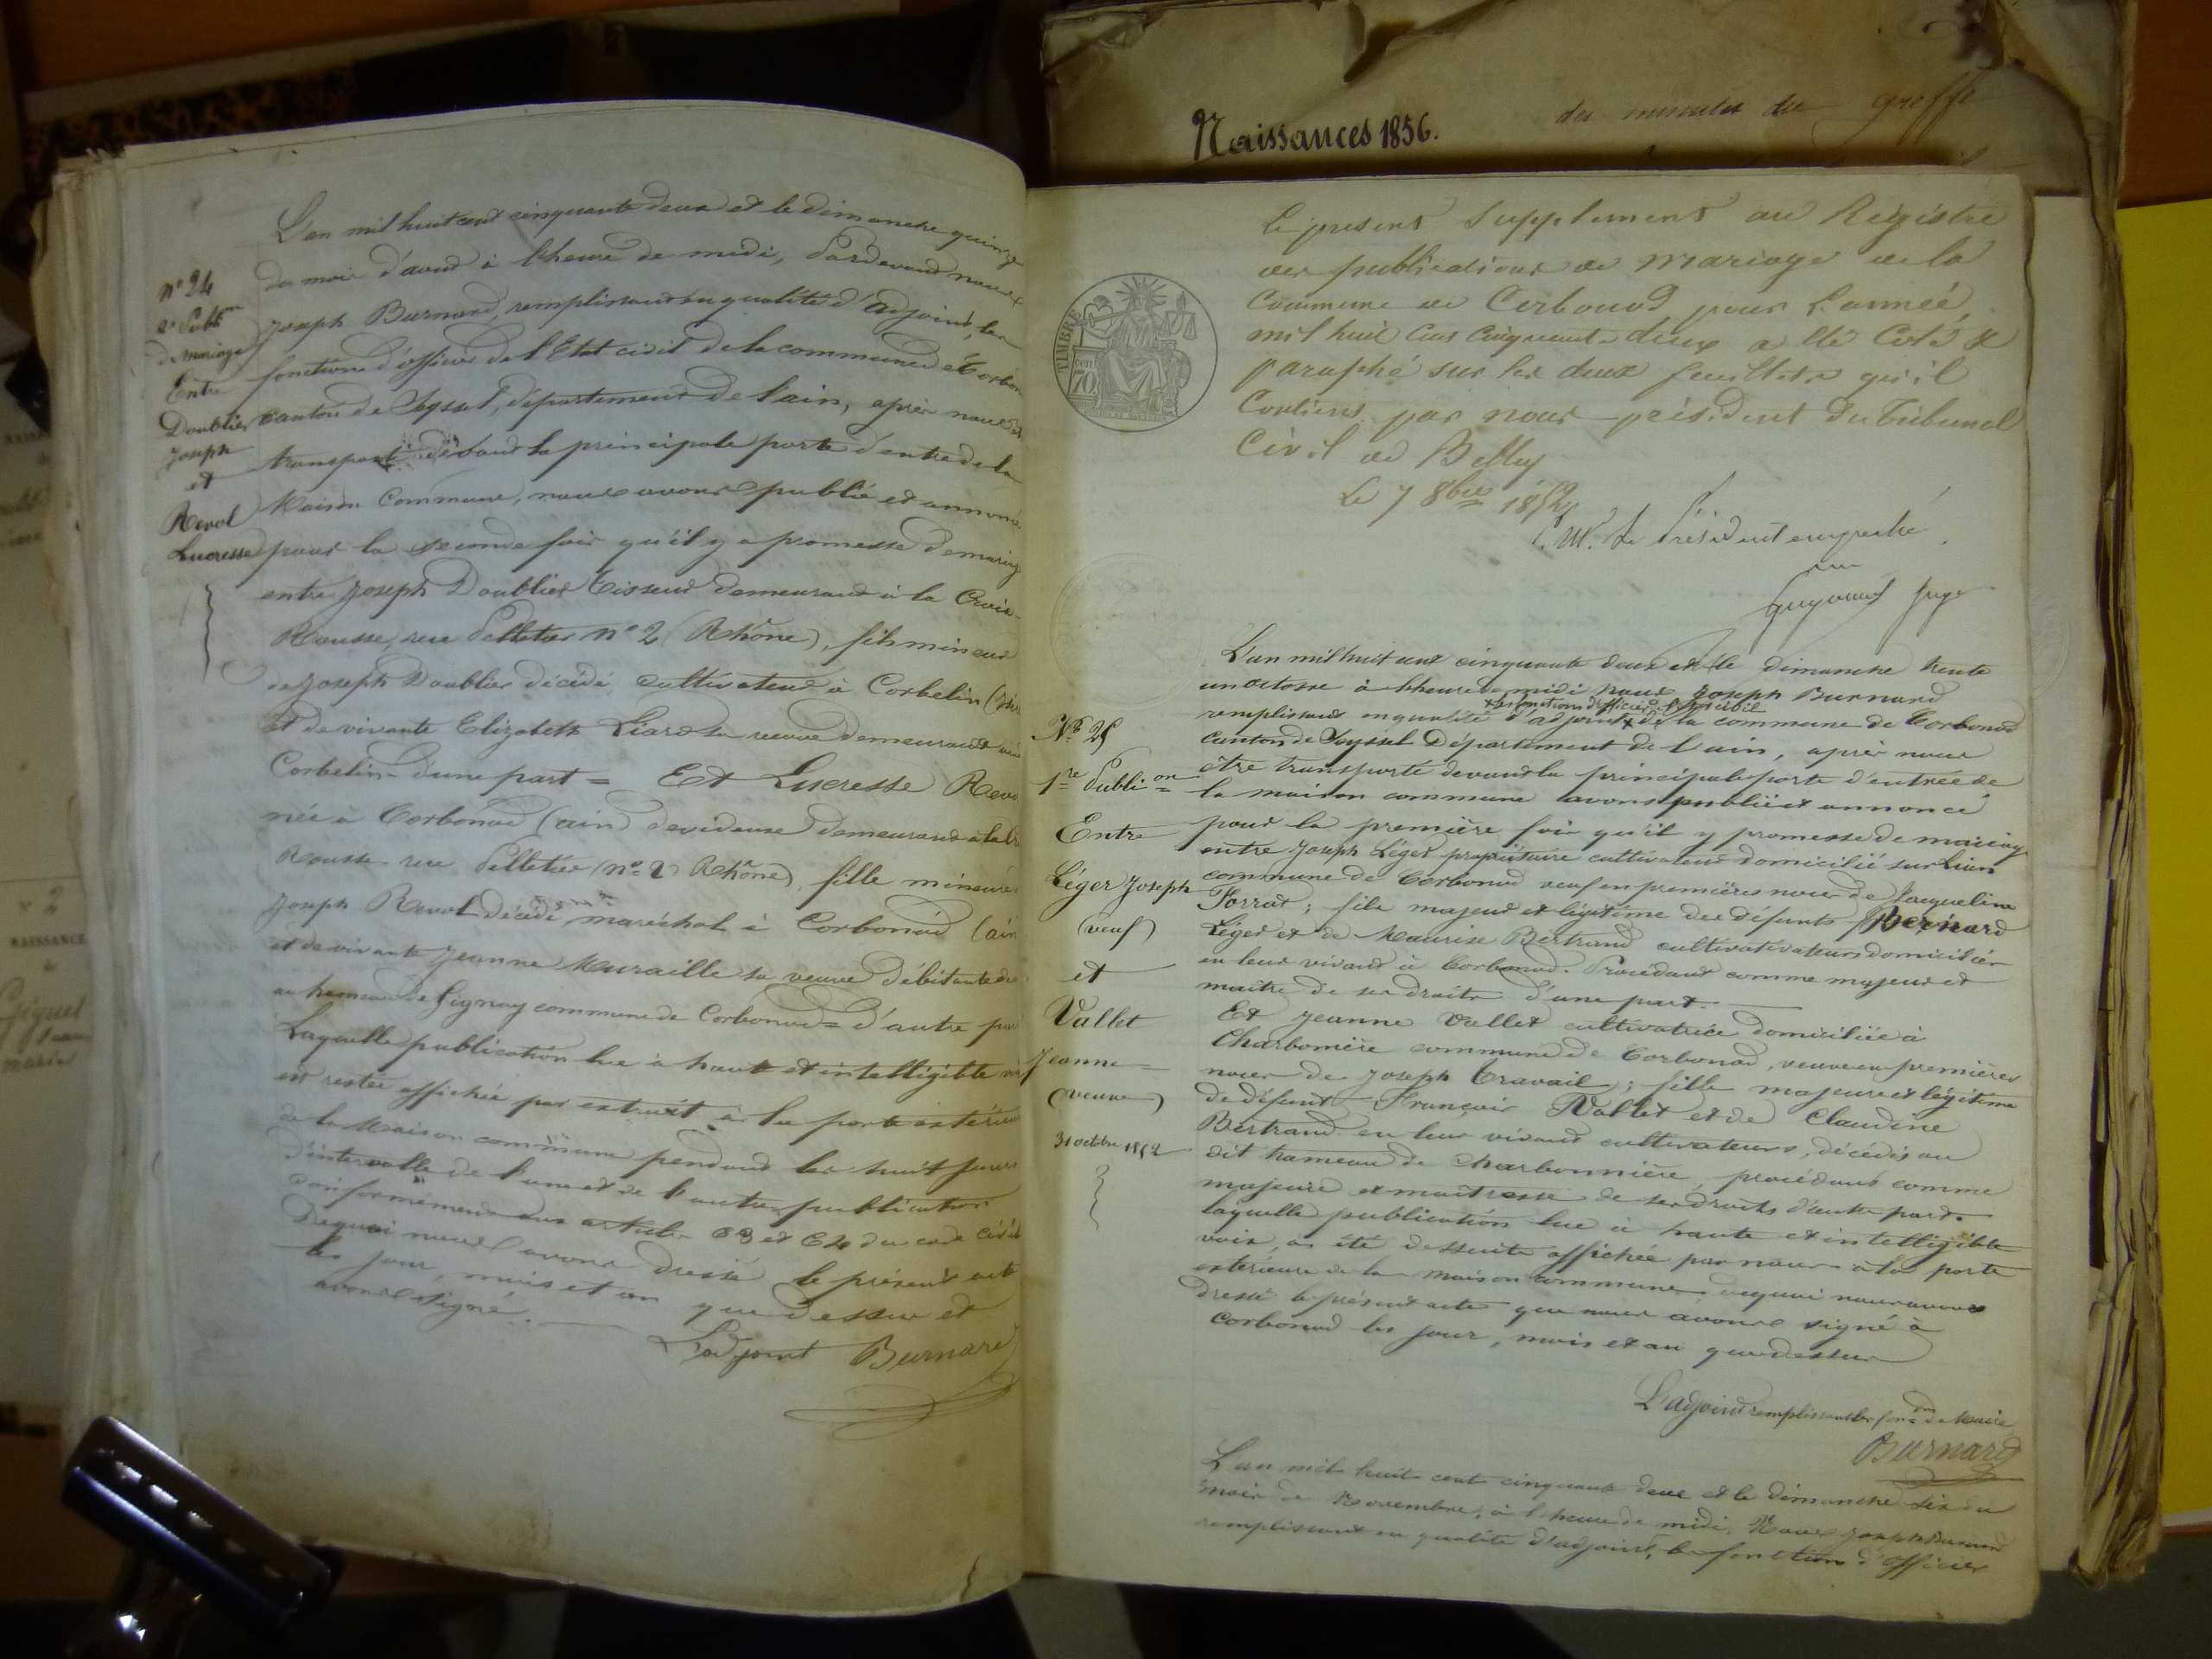 Naissances 1856.
des minutes du greffe
L'an mil huit cent cinquante deux et le dimanche quinze
du mois d'aout à l'heure de midi, Pardevant nous
Joseph Burnard, remplissant en qualité d'adjoint, les
fonctions d'officier de l'Etat civil de la commune de Corbon
canton de Seyssel, département de l'ain, après nous et
transporté devant la principale porte d'entrée de la
Maison Commune, nous avons publié et annoncé
pour la seconde fois qu'il y a promesse de mariag
entre Joseph Doublier Tisseur demeurant à la Croix-
Rousse, rue Pelletier n° 2 (Rhône), fils mineur
de Joseph Doublier décédé cultivateur à Corbelin
et de vivante Elizabeth Liard sa veuve demeurant
Corbelin d'une part = Et Lucresse Revo
née à Corbonod (ain) devideuse demeurant à la Cr
Rousse rue Pelletier (n° 2 Rhône), fille mineure
Joseph Revol décédé maréchal à Corbonod (ain
et de vivante Jeanne Muraille sa veuve débitante
au hameau de Gignay commune de Corbonod = d'autre pa
Laquelle publication lue à haute et intelligible
est restée affichée par extrait à la porte extérieure
de la Maison commune pendant les huit jours
d'intervalle de l'une et de l'autre publication
conformément aux articles 63 et 64 du code civil
De quoi nous avons dressé le présent acte
les jour, mois et an que dessus et
avons signé.
L'adjoint Burnard
n° 24
2e Pubon
de mariage
Entre
Doublier
Joseph
et
Revol
Lucresse
TIMBRE
70
Le present Supplement au Registre
des publications de mariage de la
Commune de Corbonod pour l'année
mil huit cent cinquante deux a été coté &
paraphé sur les deux feuillets qu'il
Contient par nous président du Tribunal
Civil de Belley
Le 7 8bre 1852
P. M. Le Président empeché
Juge
L'an mil huit cent cinquante deux et le dimanche trente
un octobre à l'heure de midi nous Joseph Burnard
x les fonctions d'officier de l'Etat civil
remplissant en qualité d'adjoint x de la commune de Corbonod
canton de Seyssel Département de l'ain, après nous
être transporté devant la principale porte d'entrée de
la maison commune avons publié et annoncé
pour la première fois qu'il y promesse de mariag
entre Joseph Léger propriétaire cultivateur domicilié sur Lian
commune de Corbonod veuf en premières noces de Jacqueline
Forrat ; fils majeur et légitime des défunts Bernard
Léger et de Maurise Bertrand cultivativateurs domiciliés
en leur vivant à Corbonod. Procédant comme majeur et
maître de ses droits d'une part.
Et Jeanne Vallet cultivatrice domiciliée à
Charbonnière commune de Corbonod, veuve en premières
noces de Joseph Travail ; fille majeure et légitime
de défunt François Vallet et de Claudine
Bertrand en leur vivant cultivateurs, décédés au
dit hameau de Charbonnière, procédant comme
majeure et maîtresse de ses droits d'autre part.
laquelle publication lue à haute et intelligible
voix, a été dessuite affichée par nous à la porte
extérieure de la maison commune, dequoi nous avons
dressé le présent acte que nous avons signé à
Corbonod les jour, mois et an que dessus
L'adjoint remplissant les fonons de Maire
Burnard
L'an mil huit cent cinquante deux et le dimanche dix du
mois de Novembre, à l'heure de midi, Nous Joseph Burnard
remplissant en qualité d'adjoint, les fonctions d'officier
N° 25
1re Publion
Entre
Léger Joseph
(veuf)
et
Vallet
Jeanne
(veuve)
31 octobre 1852